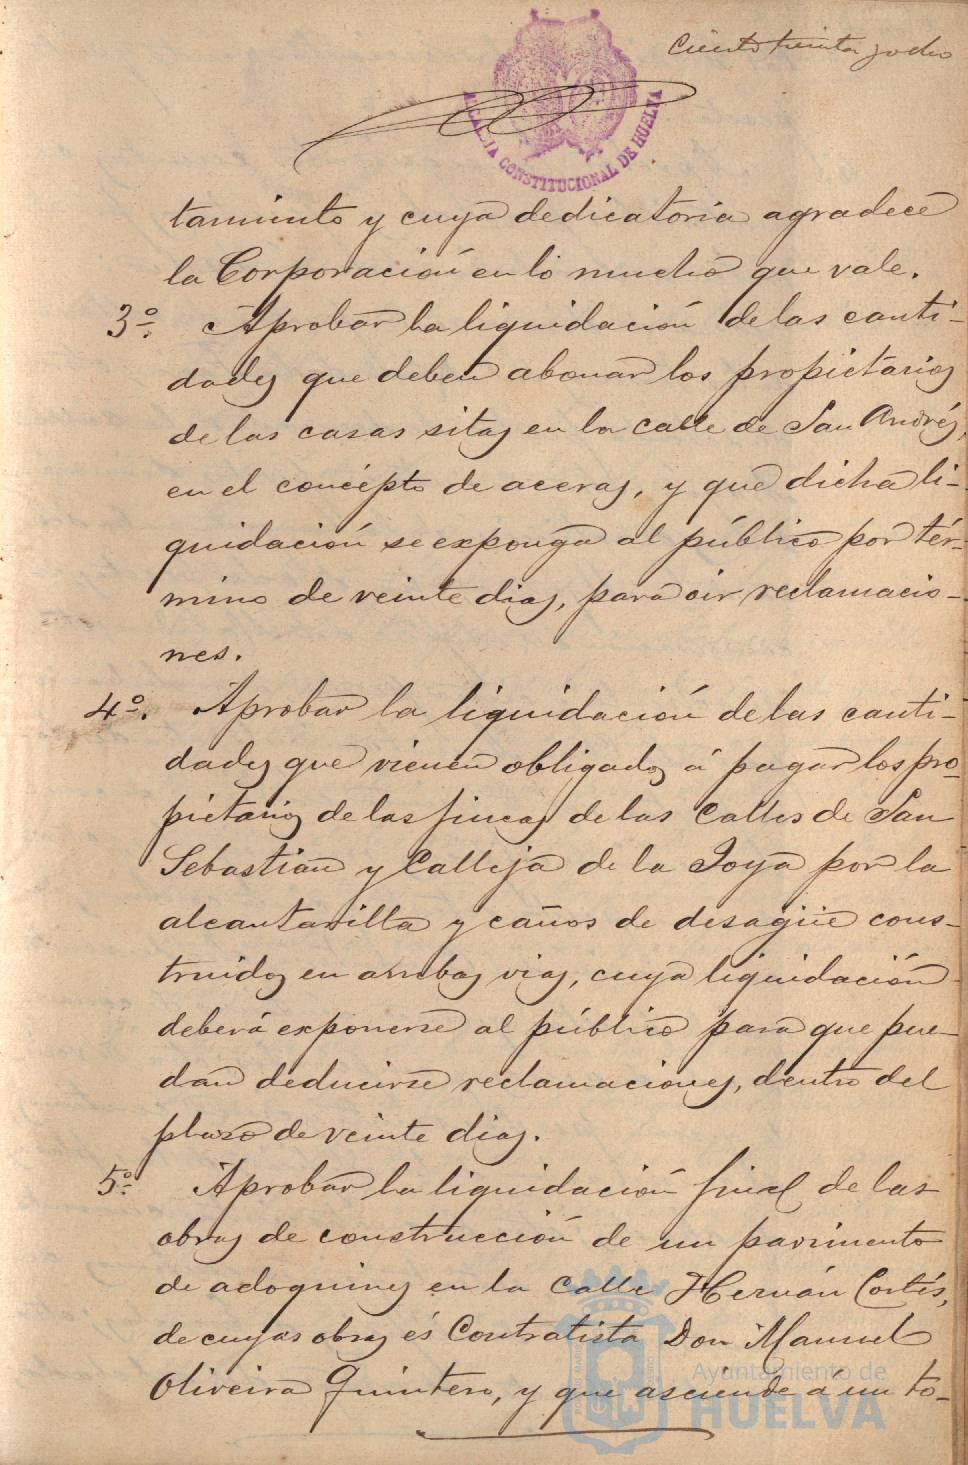 Ciento treinta y ocho
ALCALDIA CONSTITUCIONAL DE HUELVA
tamiento y cuya dedicatoria agradece
la Corporación en lo mucho que vale.
3º. Aprobar la liquidación de las canti-
dades que deben abonar los propietarios
de las casas sitas en la calle de San Andrés,
en el concépto de aceras, y que dicha li-
quidación se exponga al público por tér-
mino de veinte dias, para oir reclamacio-
nes.
4º. Aprobar la liquidación de las canti-
dades que vienen obligados á pagar los pro-
pietarios de las fincas de las Calles de San
Sebastian y Calleja de la Joya por la
alcantarilla y caños de desagüe cons-
truidos en ambas vias, cuya liquidación
deberá exponerse al público para que pue-
dan deducirse reclamaciones, dentro del
plazo de veinte dias.
5º. Aprobar la liquidación final de las
obras de construcción de un pavimento
de adoquines en la Calle Hernán Cortés,
de cuyas obras és Contratista Don Manuel
Oliveira Quintero, y que asciende á un to-
Ayuntamiento de
HUELVA